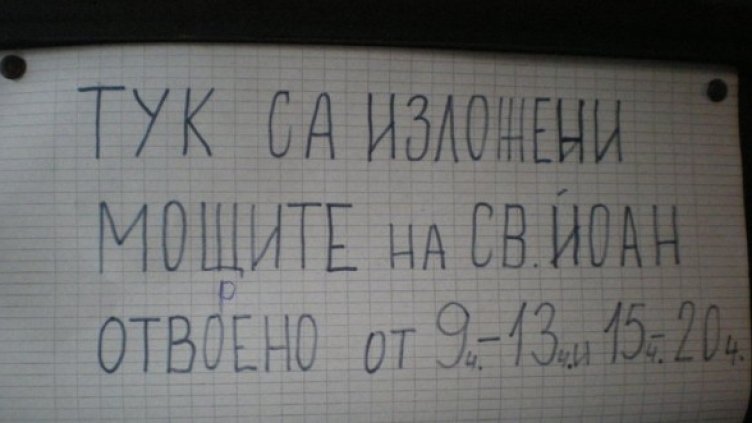 ТУК СА ИЗЛОЖЕНИ
МОЩИТЕ НА СВ. ЙОАН
ОТВОРЕНО ОТ 9ч.-13ч. и 15ч.-20ч.